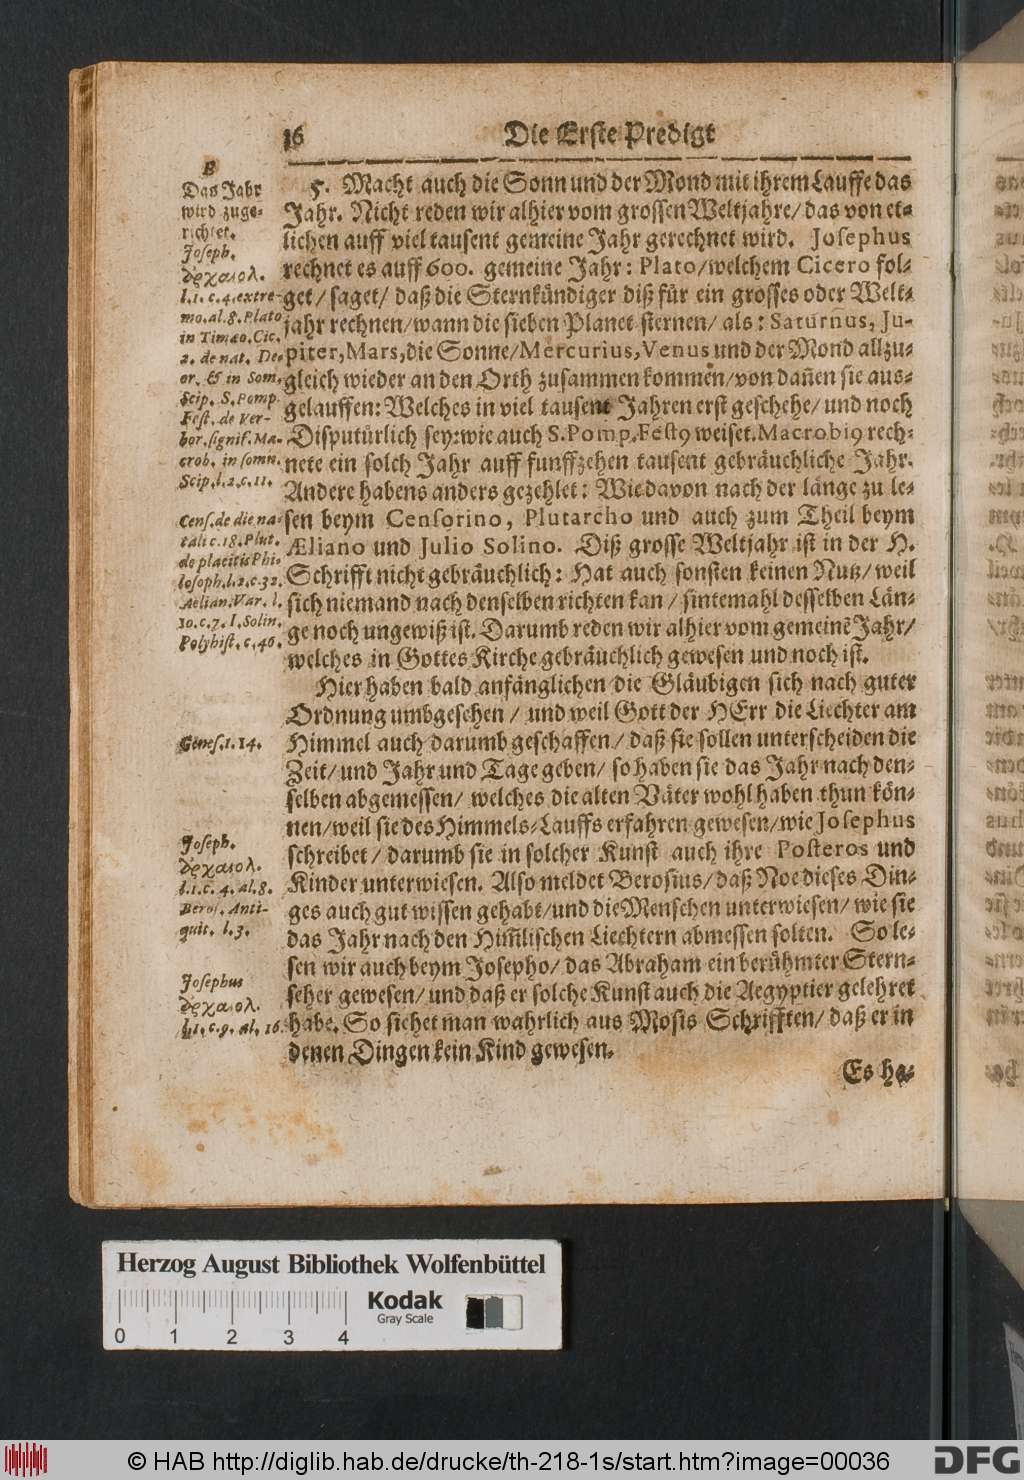 16
Die Erste Predigt
5. Macht auch die Sonn und der Mond mit ihrem Lauffe das
Jahr. Nicht reden wir alhier vom grossen Weltjahre/ das von et-
lichen auff viel tausent gemeine Jahr gerechnet wird. Josephus
rechnet es auff 600. gemeine Jahr: Plato/welchem Cicero fol-
get/ saget/ daß die Sternkündiger diß für ein grosses oder Welt-
jahr rechnen/wann die sieben Planet-sternen/ als: Saturnus, Ju-
piter, Mars, die Sonne/Mercurius, Venus und der Mond allzu-
gleich wieder an den Orth zusammen kommen/von dañen sie aus-
gelauffen: Welches in viel tausent Jahren erst geschehe/ und noch
Disputürlich sey: wie auch S. Pomp. Festꝰ weiset. Macrobiꝰ rech-
nete ein solch Jahr auff funffzehen tausent gebräuchliche Jahr.
Andere habens anders gezehlet: Wie davon nach der länge zu le-
sen beym Censorino, Plutarcho und auch zum Theil beym
Æliano und Julio Solino. Diß grosse Weltjahr ist in der H.
Schrifft nicht gebräuchlich: Hat auch sonsten keinen Nutz/ weil
sich niemand nach denselben richten kan/ sintemahl desselben Län-
ge noch ungewiß ist. Darumb reden wir alhier vom gemeinẽ Jahr/
welches in Gottes Kirche gebräuchlich gewesen und noch ist.
Hier haben bald anfänglichen die Gläubigen sich nach guter
Ordnung umbgesehen/ und weil Gott der HErr die Liechter am
Himmel auch darumb geschaffen/ daß sie sollen unterscheiden die
Zeit/ und Jahr und Tage geben/ so haben sie das Jahr nach den-
selben abgemessen/ welches die alten Väter wohl haben thun kön-
nen/weil sie des Himmels-Lauffs erfahren gewesen/wie Josephus
schreibet/ darumb sie in solcher Kunst auch ihre Posteros und
Kinder unterwiesen. Also meldet Berosius/ daß Noe dieses Din-
ges auch gut wissen gehabt/und die Menschen unterwiesen/ wie sie
das Jahr nach den Him̃lischen Liechtern abmessen solten. So le-
sen wir auch beym Josepho/ das Abraham ein berühmter Stern-
seher gewesen/ und daß er solche Kunst auch die Aegyptier gelehret
habe. So siehet man wahrlich aus Mosis Schrifften/ daß er in
denen Dingen kein Kind gewesen.
Es ha-
Das Jahr
wird zuge-
richtet.
Joseph.
ἀρχαιολ.
l. 1. c. 4. extre-
mo. al. 8. Plato
in Timæo. Cic.
2. de nat. De-
or. & in Som.
Scip. S. Pomp.
Fest. de Ver-
bor. signif. Ma-
crob. in somn.
Scip. l. 2. c. 11.
Cens. de die na-
tali c. 18. Plut.
de placitis Phi-
losoph. l. 2. c. 32.
Aelian. Var. l.
10. c. 7. I. Solin.
Polyhist. c. 46.
Genes. 1. 14.
Joseph.
ἀρχαιολ.
l. 1. c. 4. al. 8.
Beros. Anti-
quit. l. 3.
Josephus
ἀρχαιολ.
l. 1. c. 9. al. 16.
Herzog August Bibliothek Wolfenbüttel
Kodak
Gray Scale
0 1 2 3 4
© HAB http://diglib.hab.de/drucke/th-218-1s/start.htm?image=00036
DFG